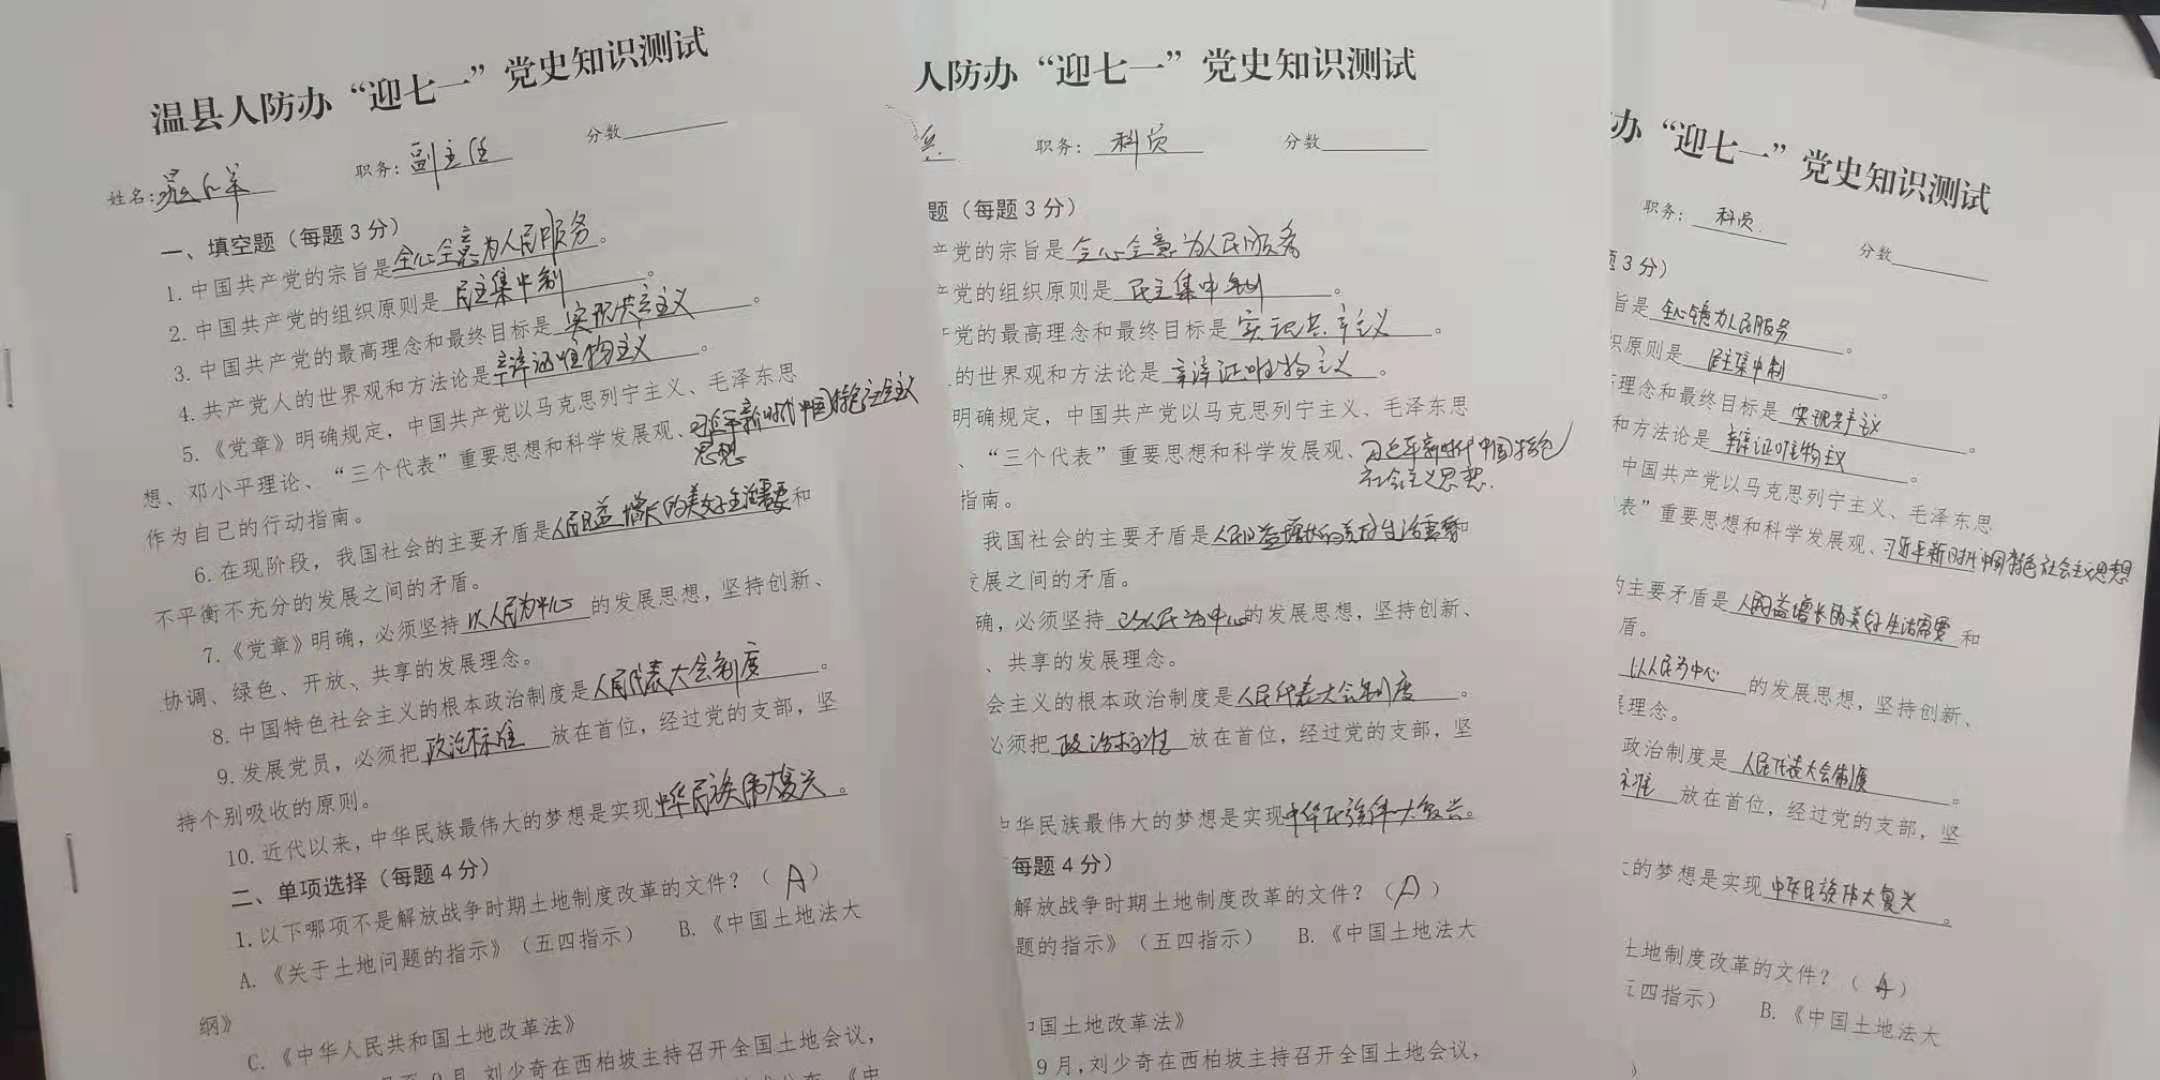 温县人防办“迎七一”党史知识测试
姓名: 职务:副主任 分数
一、填空题（每题3分）
1.中国共产党的宗旨是全心全意为人民服务。
2.中国共产党的组织原则是民主集中制。
3.中国共产党的最高理念和最终目标是实现共产主义。
4.共产党人的世界观和方法论是辩证唯物主义。
5.《党章》明确规定，中国共产党以马克思列宁主义、毛泽东思
想、邓小平理论、“三个代表”重要思想和科学发展观、习近平新时代中国特色社会主义
思想
作为自己的行动指南。
6.在现阶段，我国社会的主要矛盾是人民日益增长的美好生活需要和
不平衡不充分的发展之间的矛盾。
7.《党章》明确，必须坚持以人民为中心的发展思想，坚持创新、
协调、绿色、开放、共享的发展理念。
8.中国特色社会主义的根本政治制度是人民代表大会制度。
9.发展党员，必须把政治标准放在首位，经过党的支部，坚
持个别吸收的原则。
10.近代以来，中华民族最伟大的梦想是实现中华民族伟大复兴。
二、单项选择（每题4分）
1.以下哪项不是解放战争时期土地制度改革的文件？（A）
A.《关于土地问题的指示》（五四指示） B.《中国土地法大
纲》
C.《中华人民共和国土地改革法》
9月，刘少奇在西柏坡主持召开全国土地会议，
人防办“迎七一”党史知识测试
职务：科员 分数
题（每题3分）
产党的宗旨是全心全意为人民服务
产党的组织原则是民主集中制。
产党的最高理念和最终目标是实现共产主义。
的世界观和方法论是辩证唯物主义。
明确规定，中国共产党以马克思列宁主义、毛泽东思
、“三个代表”重要思想和科学发展观、习近平新时代中国特色
社会主义思想.
指南。
我国社会的主要矛盾是人民日益增长的美好生活需要和
发展之间的矛盾。
确，必须坚持以人民为中心的发展思想，坚持创新、
、共享的发展理念。
会主义的根本政治制度是人民代表大会制度。
必须把政治标准放在首位，经过党的支部，坚
中华民族最伟大的梦想是实现中华民族伟大复兴。
每题4分）
解放战争时期土地制度改革的文件？（A）
题的指示》（五四指示） B.《中国土地法大
中国土地改革法》
9月，刘少奇在西柏坡主持召开全国土地会议，
办“迎七一”党史知识测试
职务：科员 分数
题3分）
旨是全心全意为人民服务。
织原则是民主集中制。
理念和最终目标是实现共产主义。
和方法论是辩证唯物主义。
中国共产党以马克思列宁主义、毛泽东思
代表”重要思想和科学发展观、习近平新时代中国特色社会主义思想
的主要矛盾是人民日益增长的美好生活需要和
盾。
以人民为中心的发展思想，坚持创新、
展理念。
政治制度是人民代表大会制度。
标准放在首位，经过党的支部，坚
大的梦想是实现中华民族伟大复兴。
土地制度改革的文件？（A）
五四指示） B.《中国土地法大
》